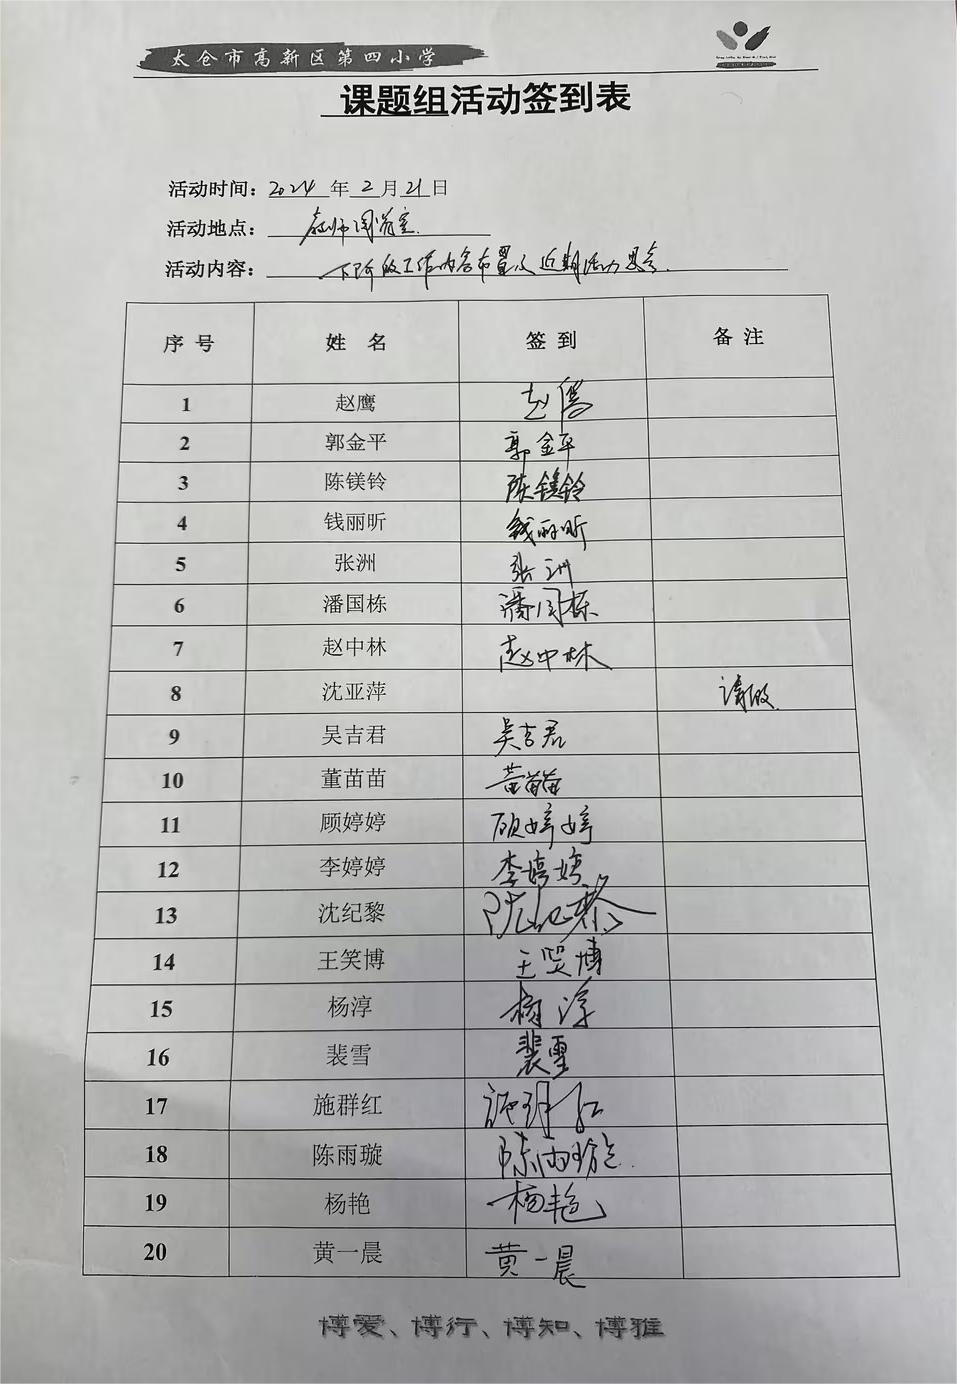 太仓市高新区第四小学
课题组活动签到表
活动时间：2024 年 2 月 21 日
活动地点：教师阅览室
活动内容：下阶段工作内容布置及近期活动思会
序 号 姓 名 签 到 备 注
1 赵鹰 赵鹰
2 郭金平 郭金平
3 陈镁铃 陈镁铃
4 钱丽昕 钱丽昕
5 张洲 张洲
6 潘国栋 潘国栋
7 赵中林 赵中林
8 沈亚萍 请假
9 吴吉君 吴吉君
10 董苗苗 董苗苗
11 顾婷婷 顾婷婷
12 李婷婷 李婷婷
13 沈纪黎 沈纪黎
14 王笑博 王笑博
15 杨淳 杨淳
16 裴雪 裴雪
17 施群红 施群红
18 陈雨璇 陈雨璇
19 杨艳 杨艳
20 黄一晨 黄一晨
博爱、博行、博知、博雅